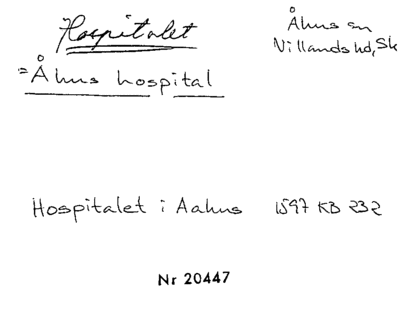 Hospitalet
= Åhus hospital
Åhus sn
Villands hd, Sk
Hospitalet i Aahus 1597 KB 232
Nr 20447